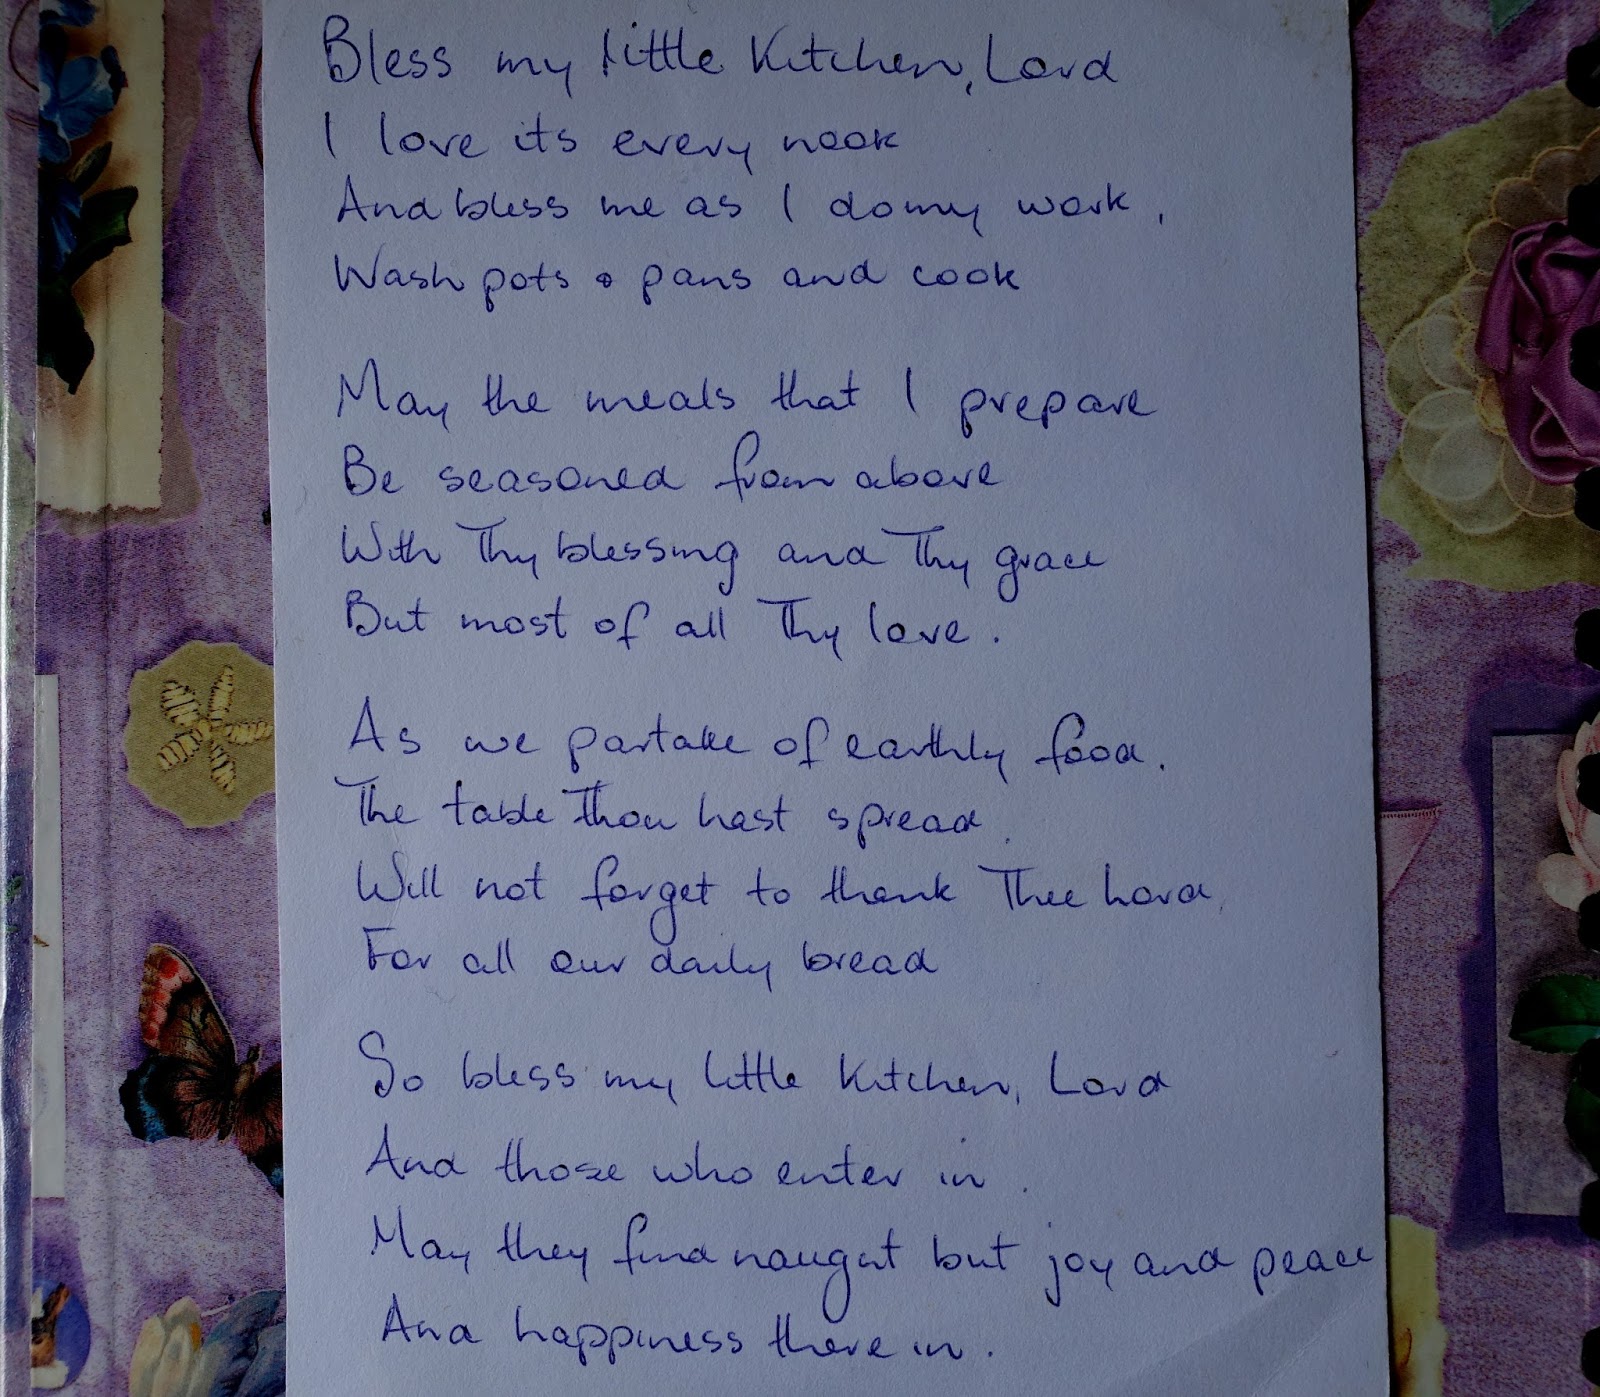 Bless my little Kitchen, Lord
I love its every nook
And bless me as I do my work,
Wash pots & pans and cook
May the meals that I prepare
Be seasoned from above
With Thy blessing and Thy grace
But most of all Thy love.
As we partake of earthly food.
The table Thou hast spread.
Will not forget to thank Thee Lord,
For all our daily bread
So bless my little Kitchen, Lord
And those who enter in.
May they find naught but joy and peace
And happiness there in.